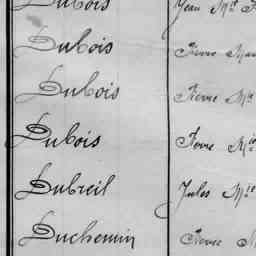 Dubois Jean Mie
Dubois Pierre Mar
Dubois Pierre Mie
Dubois Pierre Mie
Dubreil Jules Mie
Duchemin Pierre M